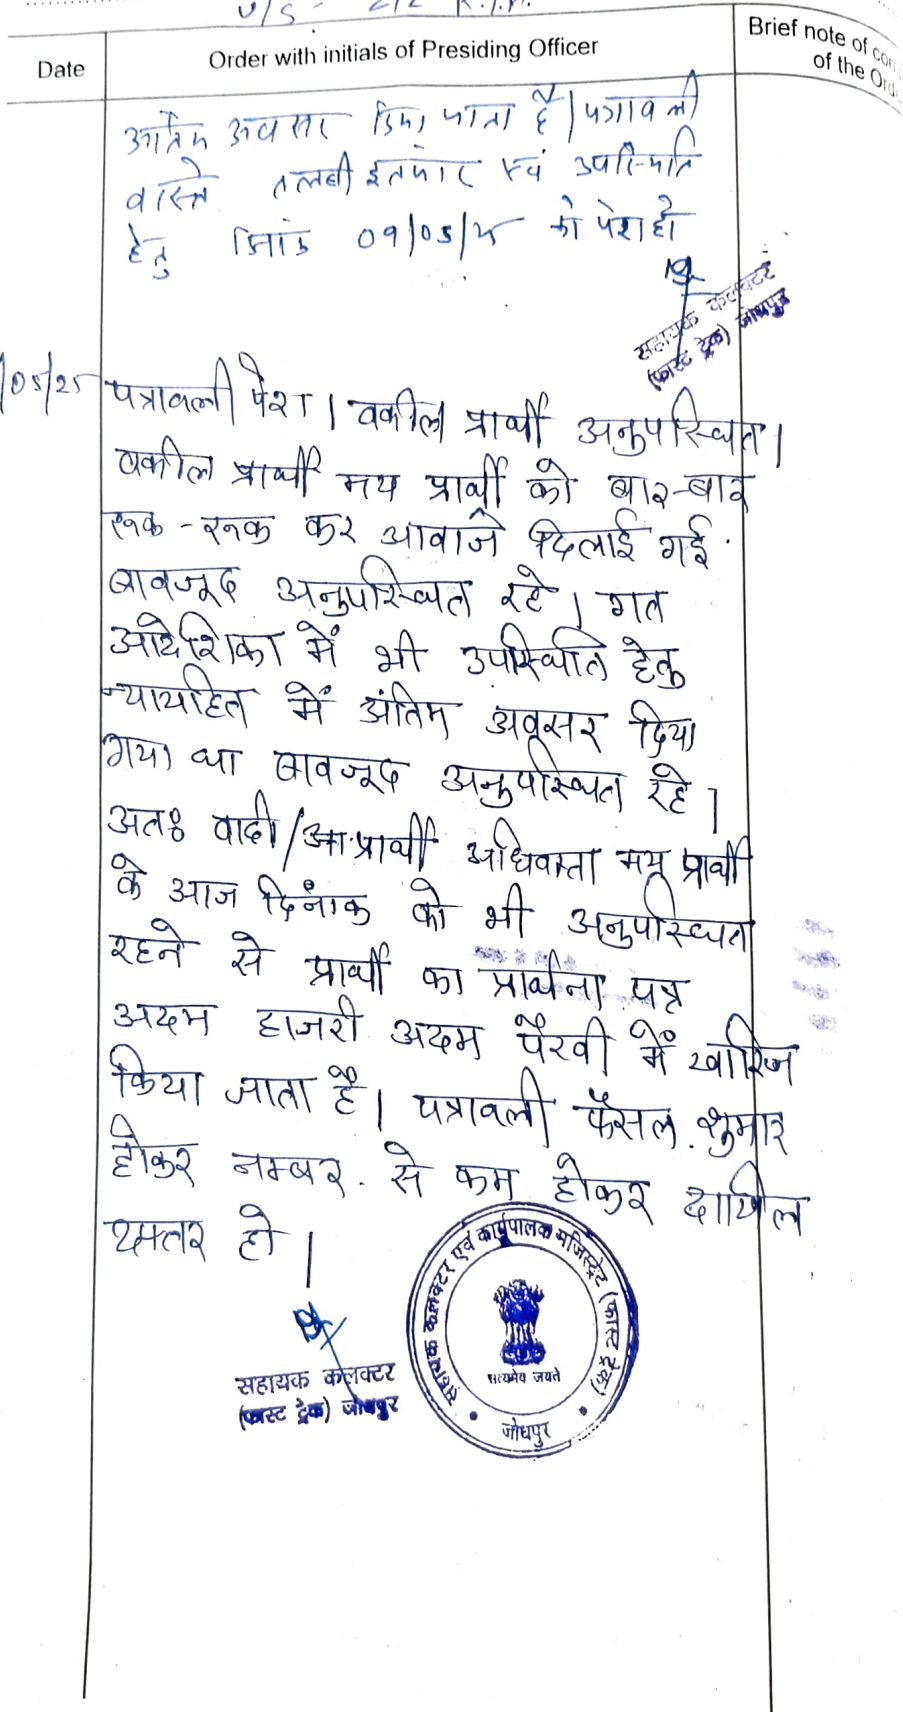 U/S - 212 R.T.A.
Date
Order with initials of Presiding Officer
Brief note of
of the
अंतिम अवसर दिया जाता है। पत्रावली
वास्ते तलबी इंतजार एवं उपस्थिति
हेतु दिनांक 09/05/25 को पेश हो
सहायक कलेक्टर
(फास्ट ट्रेक) जोधपुर
/05/25 पत्रावली पेश। वकील प्रार्थी अनुपस्थित।
वकील प्रार्थी मय प्रार्थी को बार-बार
रूक-रूक कर आवाजे दिलाई गई
बावजूद अनुपस्थित रहे। गत
आदेशिका में भी उपस्थिति हेतु
न्यायहित में अंतिम अवसर दिया
गया था बावजूद अनुपस्थित रहे।
अतः वादी/प्रार्थी अधिवक्ता मय प्रार्थी
के आज दिनांक को भी अनुपस्थित
रहने से प्रार्थी का प्रार्थना पत्र
अदम हाजरी अदम पैरवी में खारिज
किया जाता है। पत्रावली फैसल शुमार
होकर नम्बर से कम होकर दाखिल
दफ्तर हो।
सहायक कलक्टर
(फास्ट ट्रेक) जोधपुर
सहायक कलक्टर एवं कार्यपालक मजिस्ट्रेट (फास्ट ट्रेक)
सत्यमेव जयते
जोधपुर